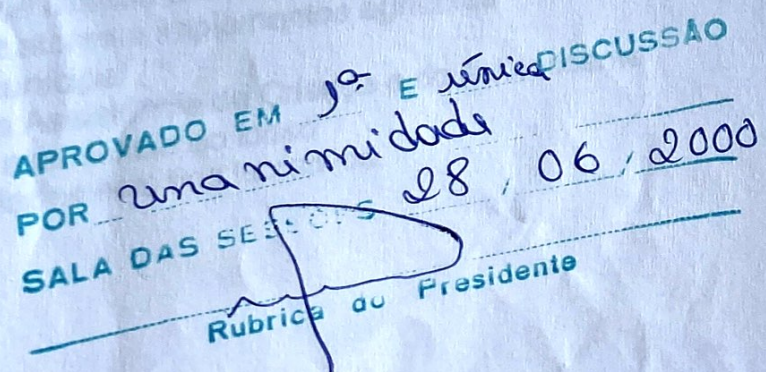 APROVADO EM 1ª E única DISCUSSÃO
POR unanimidade
SALA DAS SESSÕES 28 / 06 / 2000
Rubrica do Presidente